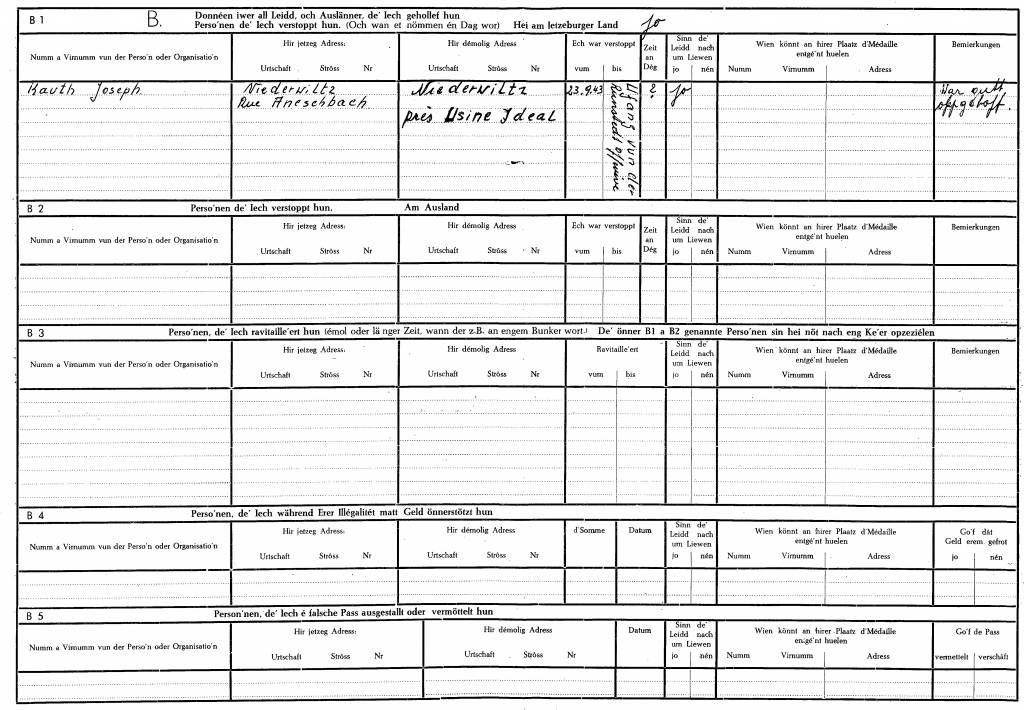 B 1
B.
Donnéen iwer all Leidd, och Auslänner, de' Iech gehollef hun
Perso'nen de' Iech verstoppt hun. (Och wan et nömmen én Dag wor) Hei am letzeburger Land
jo
Numm a Virnumm vun der Perso'n oder Organisatio'n
Hir jetzeg Adress:
Urtschaft Ströss Nr
Hir démolig Adress
Urtschaft Ströss Nr
Ech war verstoppt
vum bis
Zeit
an
Dég
Sinn de'
Leidd nach
um Liewen
jo nén
Wien könnt an hirer Plaatz d'Médaille
entgé'nt huelen
Numm Virnumm Adress
Bemierkungen
Kauth Joseph
Niederwiltz
Rue Aneschbach
Niederwiltz
près Usine Ideal
23.9.43
Ufang vun der
?
jo
War gutt
B 2
Perso'nen de' Iech verstoppt hun. Am Ausland
Numm a Virnumm vun der Perso'n oder Organisatio'n
Hir jetzeg Adress:
Urtschaft Ströss Nr
Hir démolig Adress
Urtschaft Ströss Nr
Ech war verstoppt
vum bis
Zeit
an
Dég
Sinn de'
Leidd nach
um Liewen
jo nén
Wien könnt an hirer Plaatz d'Médaille
entgé'nt huelen
Numm Virnumm Adress
Bemierkungen
B 3
Perso'nen, de' Iech ravitaille'ert hun (émol oder lä nger Zeit, wann der z.B. an engem Bunker wort.) De' önner B1 a B2 genannte Perso'nen sin hei nöt nach eng Ke'er opzeziélen
Numm a Virnumm vun der Perso'n oder Organisatio'n
Hir jetzeg Adress:
Urtschaft Ströss Nr
Hir démolig Adress
Urtschaft Ströss Nr
Ravitaille'ert
vum bis
Sinn de'
Leidd nach
um Liewen
jo nén
Wien könnt an hirer Plaatz d'Médaille
entgé'nt huelen
Numm Virnumm Adress
Bemierkungen
B 4
Perso'nen, de' Iech während Erer Illégalitét matt Geld önnerstötzt hun
Numm a Virnumm vun der Perso'n oder Organisatio'n
Hir jetzeg Adress:
Urtschaft Ströss Nr
Hir démolig Adress
Urtschaft Ströss Nr
d'Somme
Datum
Sinn de'
Leidd nach
um Liewen
jo nén
Wien könnt an hirer Plaatz d'Médaille
entgé'nt huelen
Numm Virnumm Adress
Go'f dât
Geld erem gefrot
jo nén
B 5
Person'nen, de' Iech é falsche Pass ausgestallt oder vermöttelt hun
Numm a Virnumm vun der Perso'n oder Organisatio'n
Hir jetzeg Adress:
Urtschaft Ströss Nr
Hir démolig Adress
Urtschaft Ströss Nr
Datum
Sinn de'
Leidd nach
um Liewen
jo nén
Wien könnt an hirer Plaatz d'Médaille
entgé'nt huelen
Numm Virnumm Adress
Go'f de Pass
vermettelt verschâft